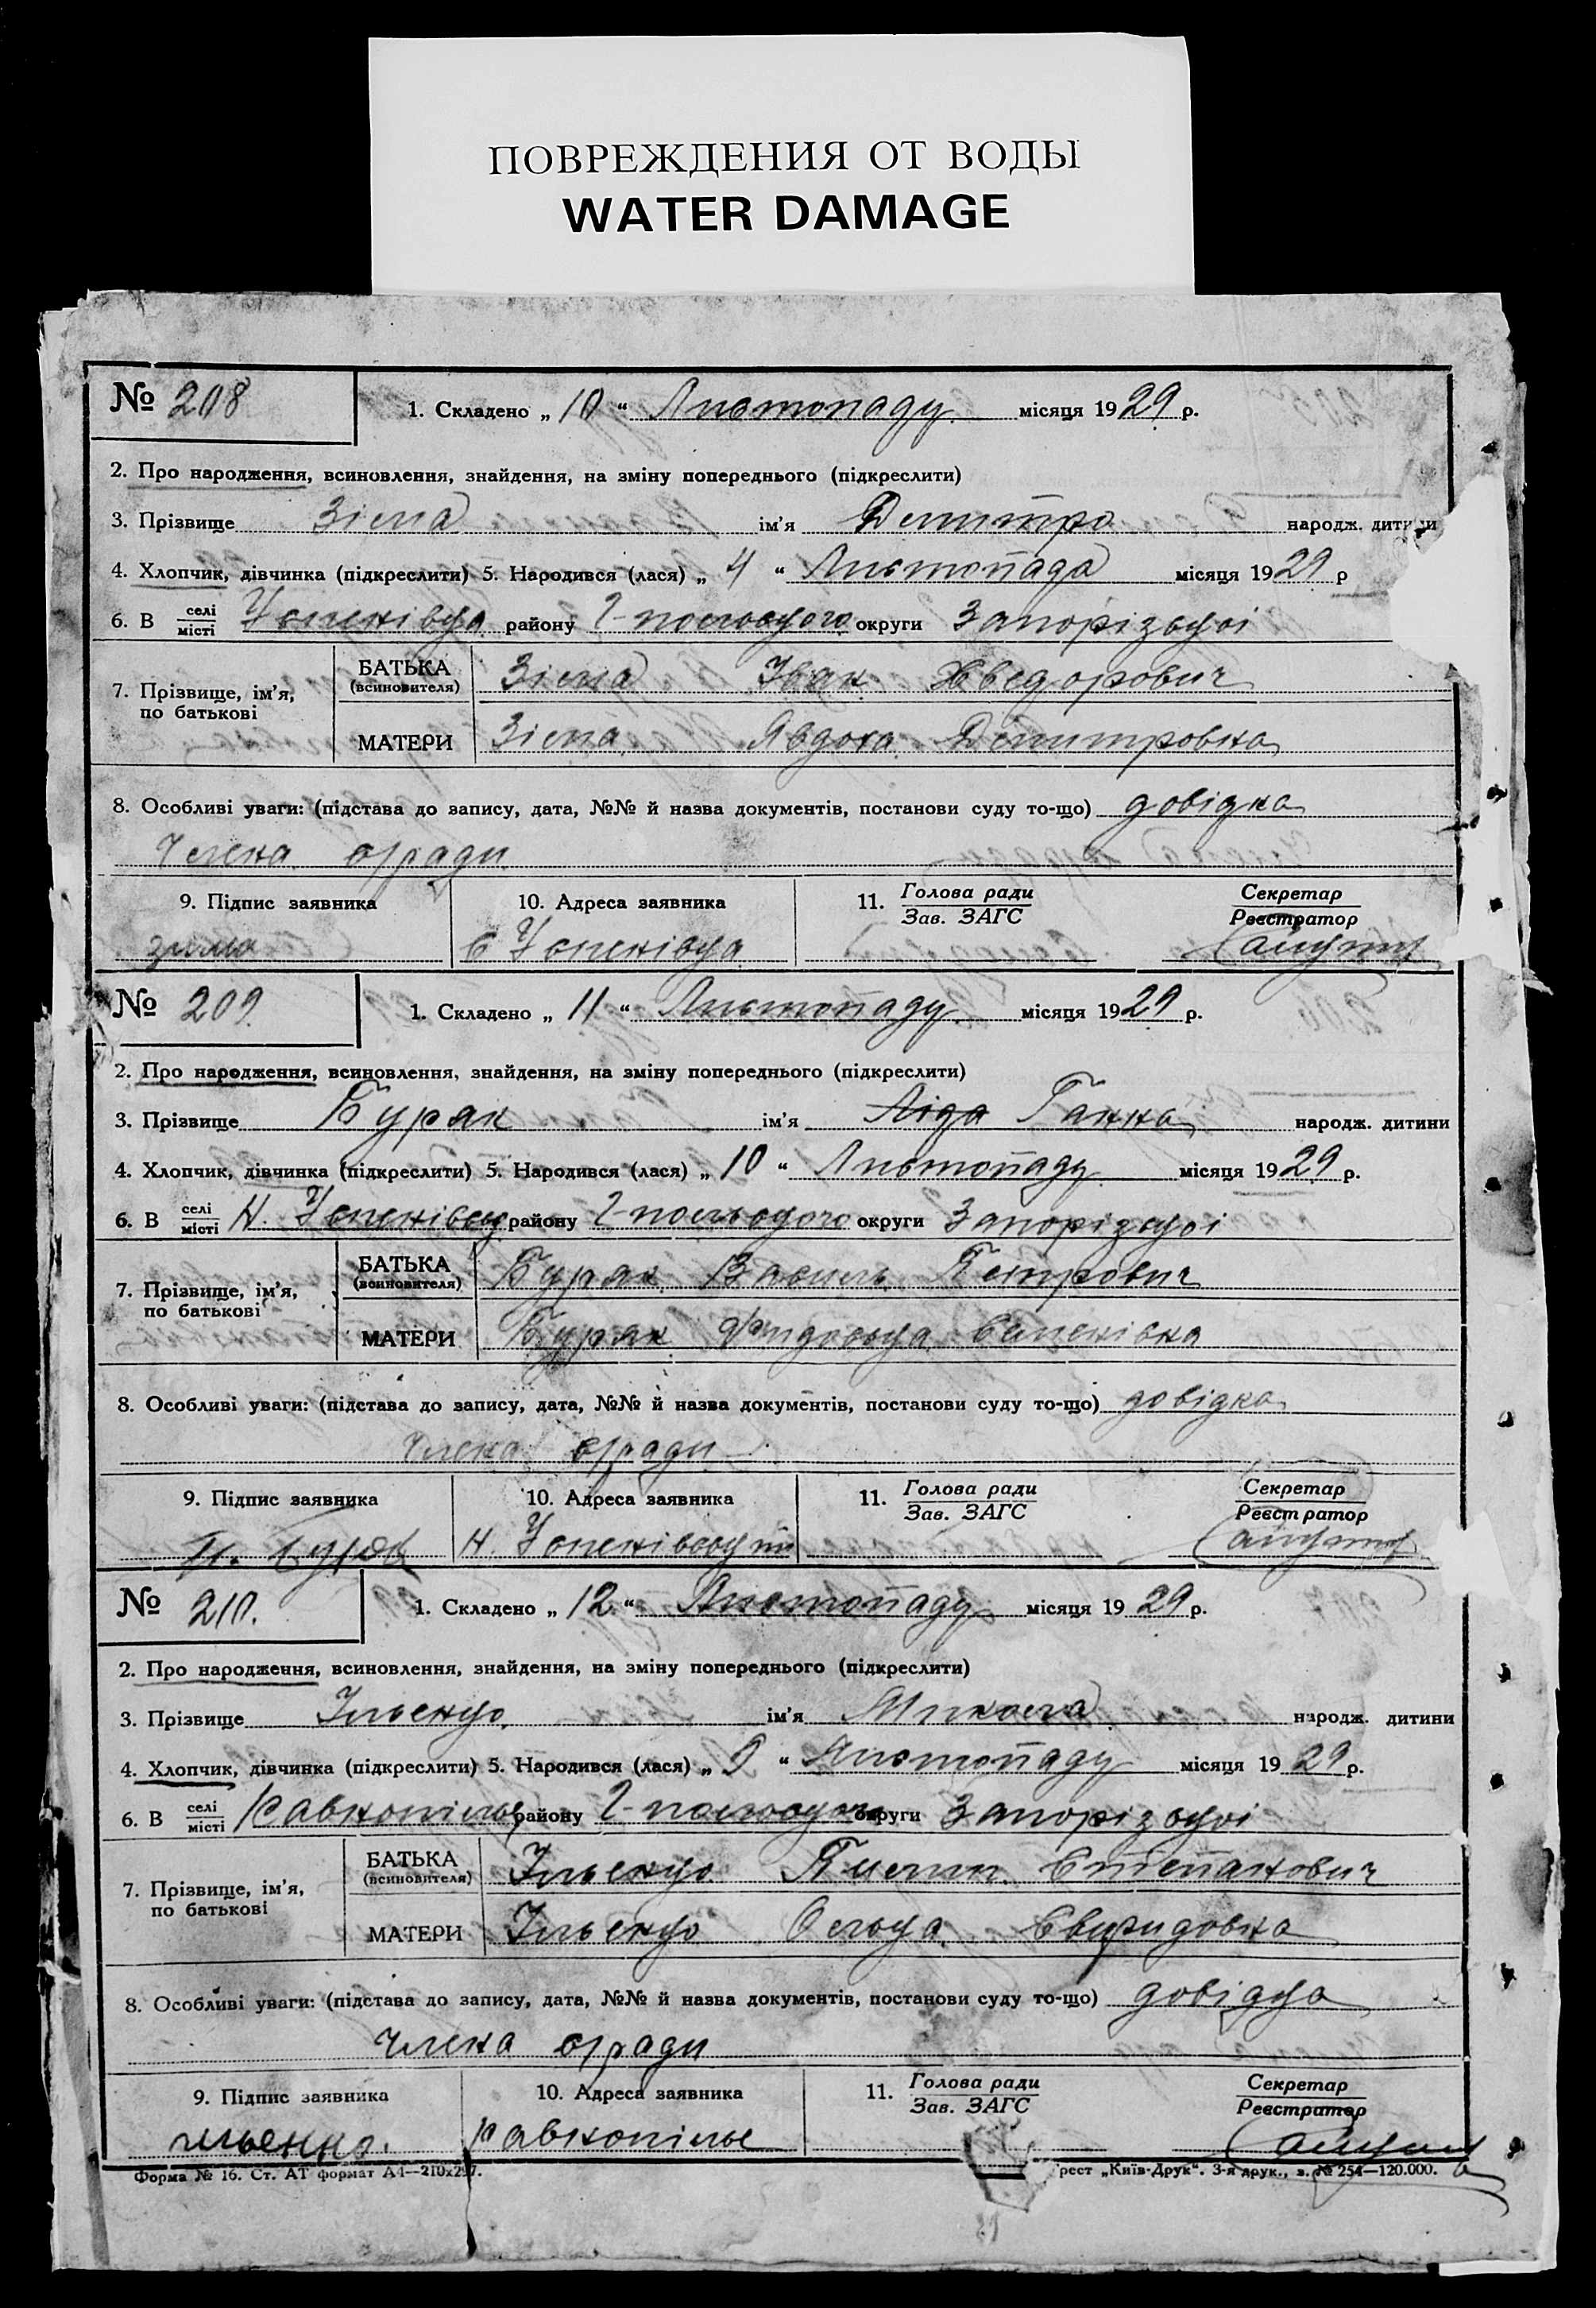 ПОВРЕЖДЕНИЯ ОТ ВОДЫ
WATER DAMAGE
№ 208
1. Складено „ 10 “ Листопаду місяця 1929 р.
2. Про народження, всиновлення, знайдення, на зміну попереднього (підкреслити)
3. Прізвище Зіма ім’я Дмитро народж. дитини
4. Хлопчик, дівчинка (підкреслити) 5. Народився (лася) „ 4 “ Листопада місяця 1929 р
6. В селі/місті Успенівка району Г-польського округи Запорізької
7. Прізвище, ім’я, по батькові
БАТЬКА (всиновителя) Зіма Іван Хведорович
МАТЕРИ Зіма Явдоха Дмитровна
8. Особливі уваги: (підстава до запису, дата, №№ й назва документів, постанови суду то-що) довідка
Члена с/ради
9. Підпис заявника 10. Адреса заявника 11. Голова ради/Зав. ЗАГС Секретар/Реєстратор
зима с Успенівка
№ 209.
1. Складено „ 11 “ Листопаду місяця 1929 р.
2. Про народження, всиновлення, знайдення, на зміну попереднього (підкреслити)
3. Прізвище Буряк ім’я Ліда Ганна народж. дитини
4. Хлопчик, дівчинка (підкреслити) 5. Народився (лася) „ 10 “ Листопаду місяця 1929 р.
6. В селі/місті Н. Успенівка району Г-польського округи Запорізької
7. Прізвище, ім’я, по батькові
БАТЬКА (всиновителя) Буряк Василь Петрович
МАТЕРИ Буряк Семенівна
8. Особливі уваги: (підстава до запису, дата, №№ й назва документів, постанови суду то-що) довідка
Члена с/ради
9. Підпис заявника 10. Адреса заявника 11. Голова ради/Зав. ЗАГС Секретар/Реєстратор
Н.
№ 210.
1. Складено „ 12 “ Листопаду місяця 1929 р.
2. Про народження, всиновлення, знайдення, на зміну попереднього (підкреслити)
3. Прізвище Ільенко ім’я Микола народж. дитини
4. Хлопчик, дівчинка (підкреслити) 5. Народився (лася) „ “ Листопаду місяця 1929 р.
6. В селі/місті Равнопілье району Г-польського округи Запорізької
7. Прізвище, ім’я, по батькові
БАТЬКА (всиновителя) Ільенко Пилип Степанович
МАТЕРИ Ільенко Ольга Свиридовна
8. Особливі уваги: (підстава до запису, дата, №№ й назва документів, постанови суду то-що) довідка
члена с/ради
9. Підпис заявника 10. Адреса заявника 11. Голова ради/Зав. ЗАГС Секретар/Реєстратор
ильенко. Равнопілье
Форма № 16. Ст. АТ формат А4—210х297. рест „Київ-Друк“. 3-я друк., з. № 254—120.000.